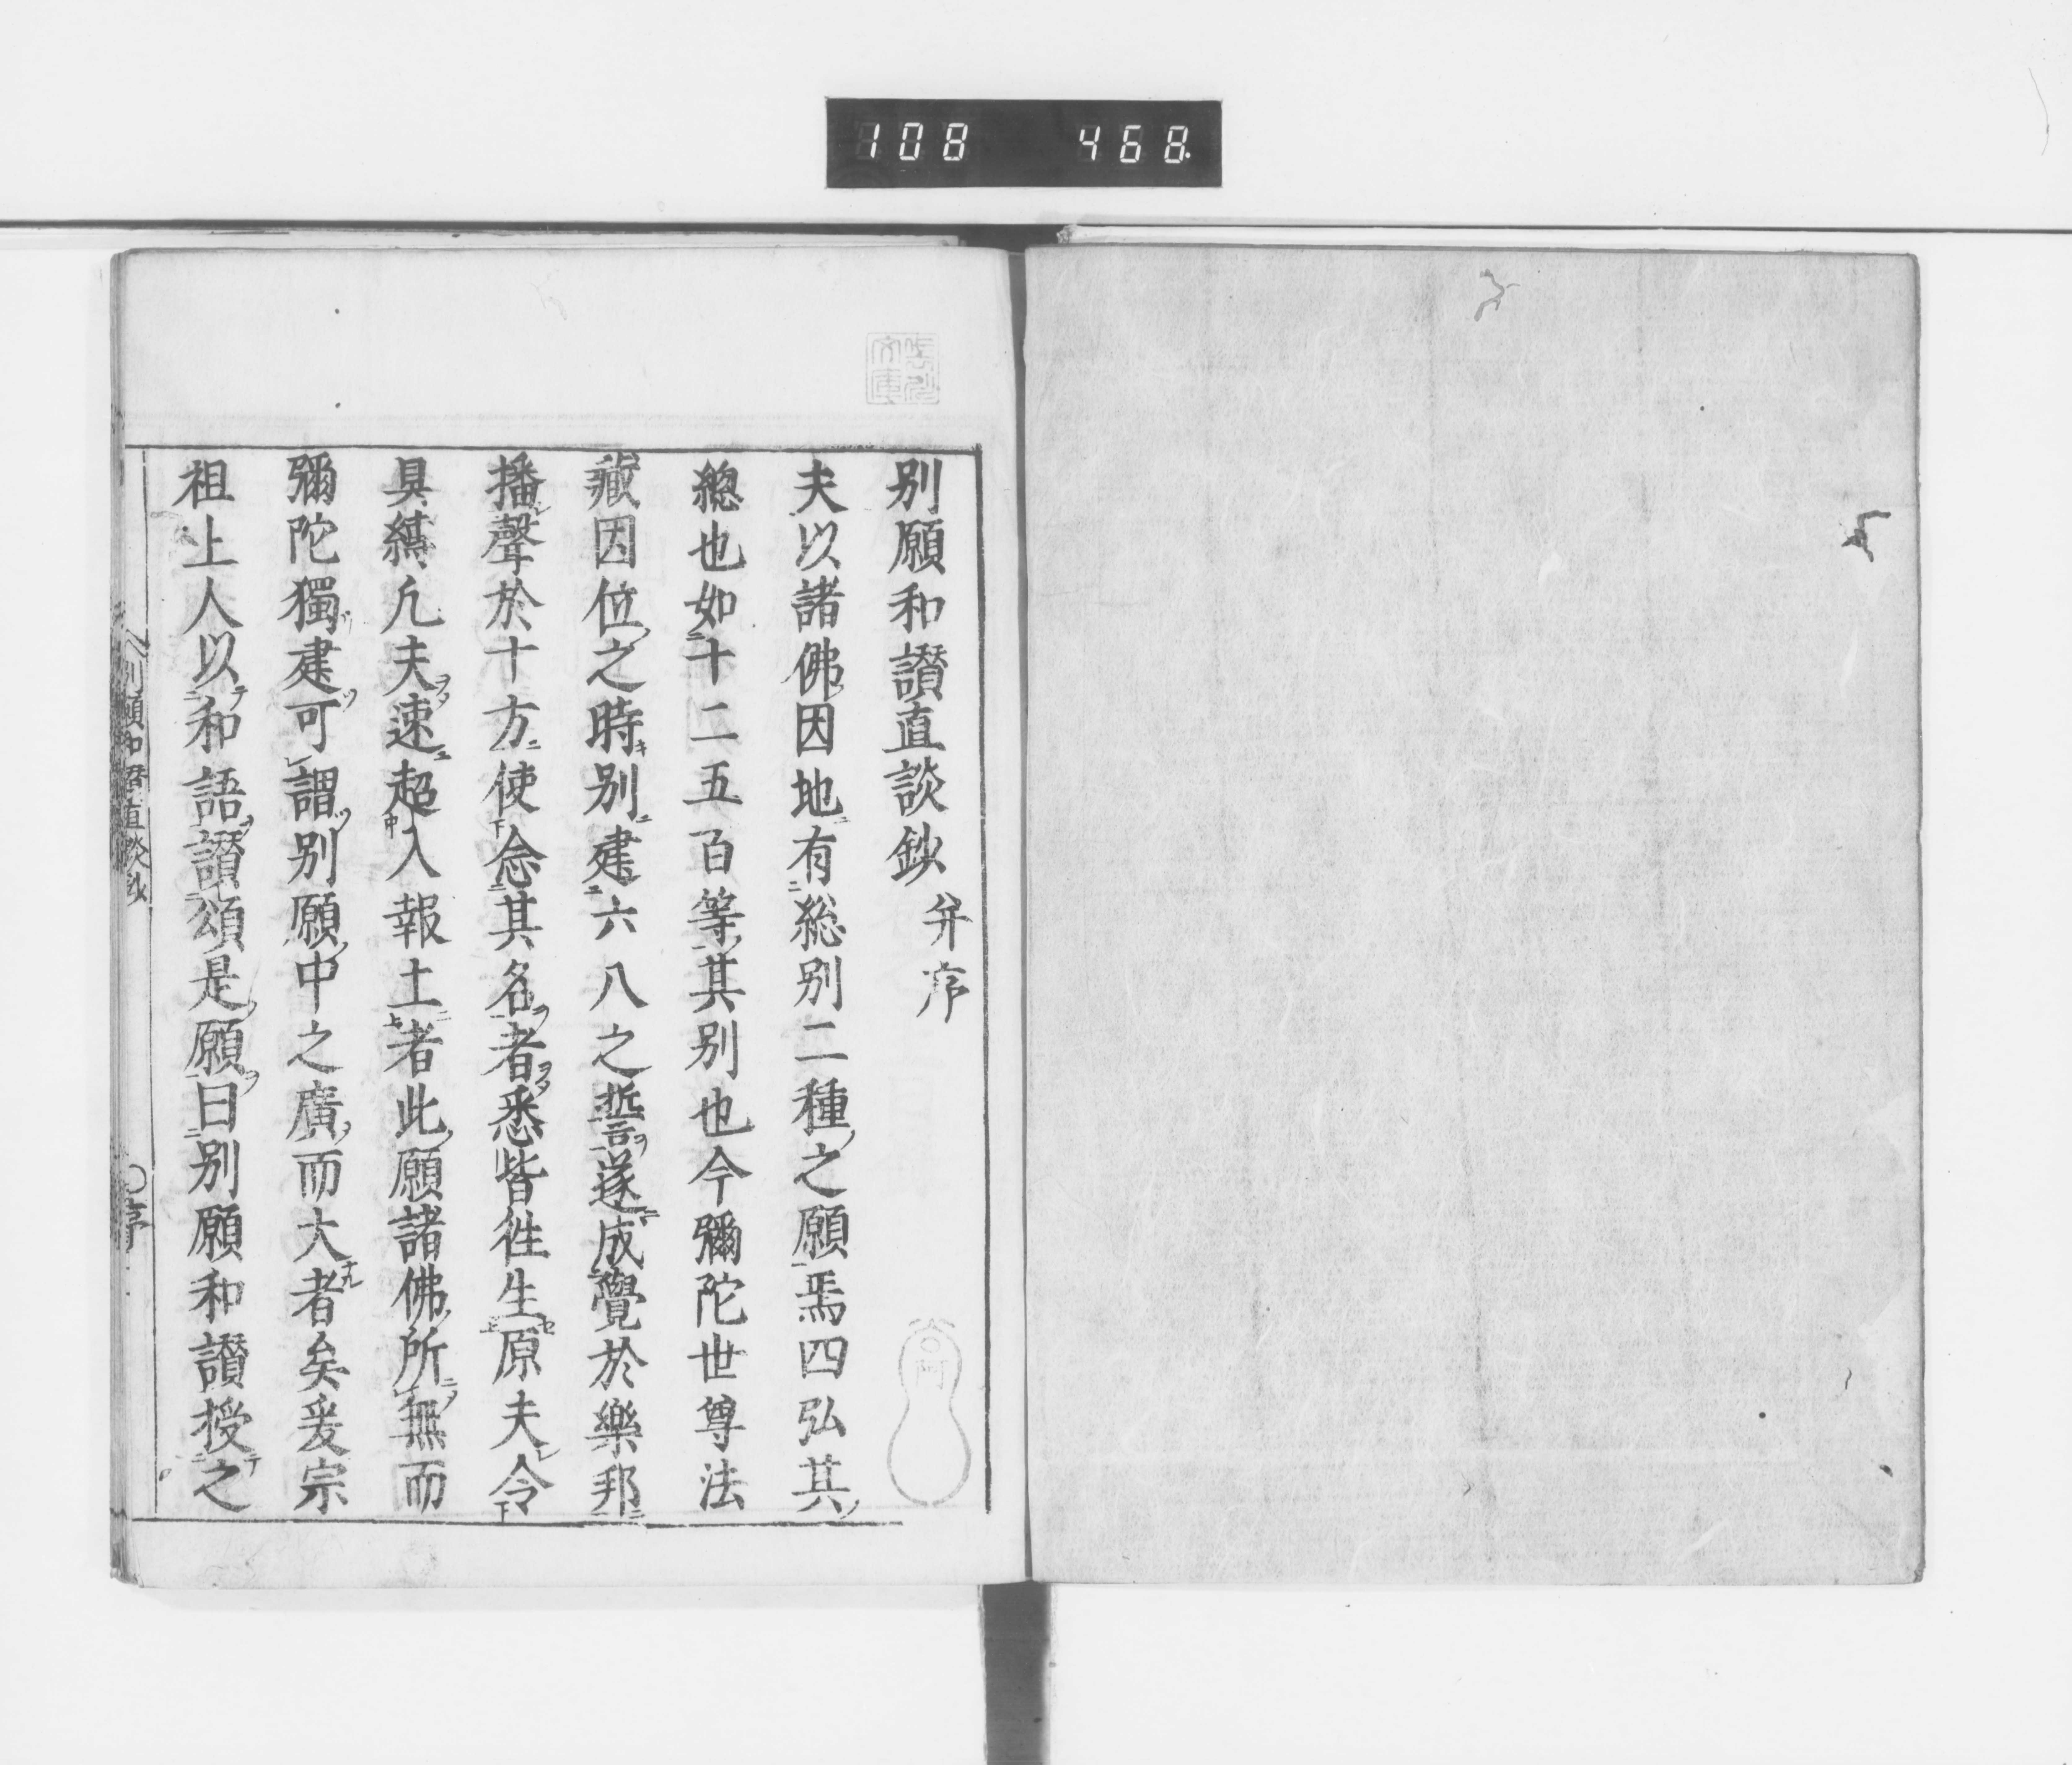 108 468
別願和讃直談鈔 并序
夫以諸佛因地有総別二種之願焉四弘其
總也如十二五百等其別也今彌陀世尊法
藏因位之時別建六八之誓遂成覺於樂邦
播聲於十方使念其名者悉皆徃生原夫令
具縛凢夫速超入報土者此願諸佛所無而
彌陀獨建可謂別願中之廣而大者矣爰宗
祖上人以和語讃頌是願曰別願和讃授之
別願和讃直談鈔 序